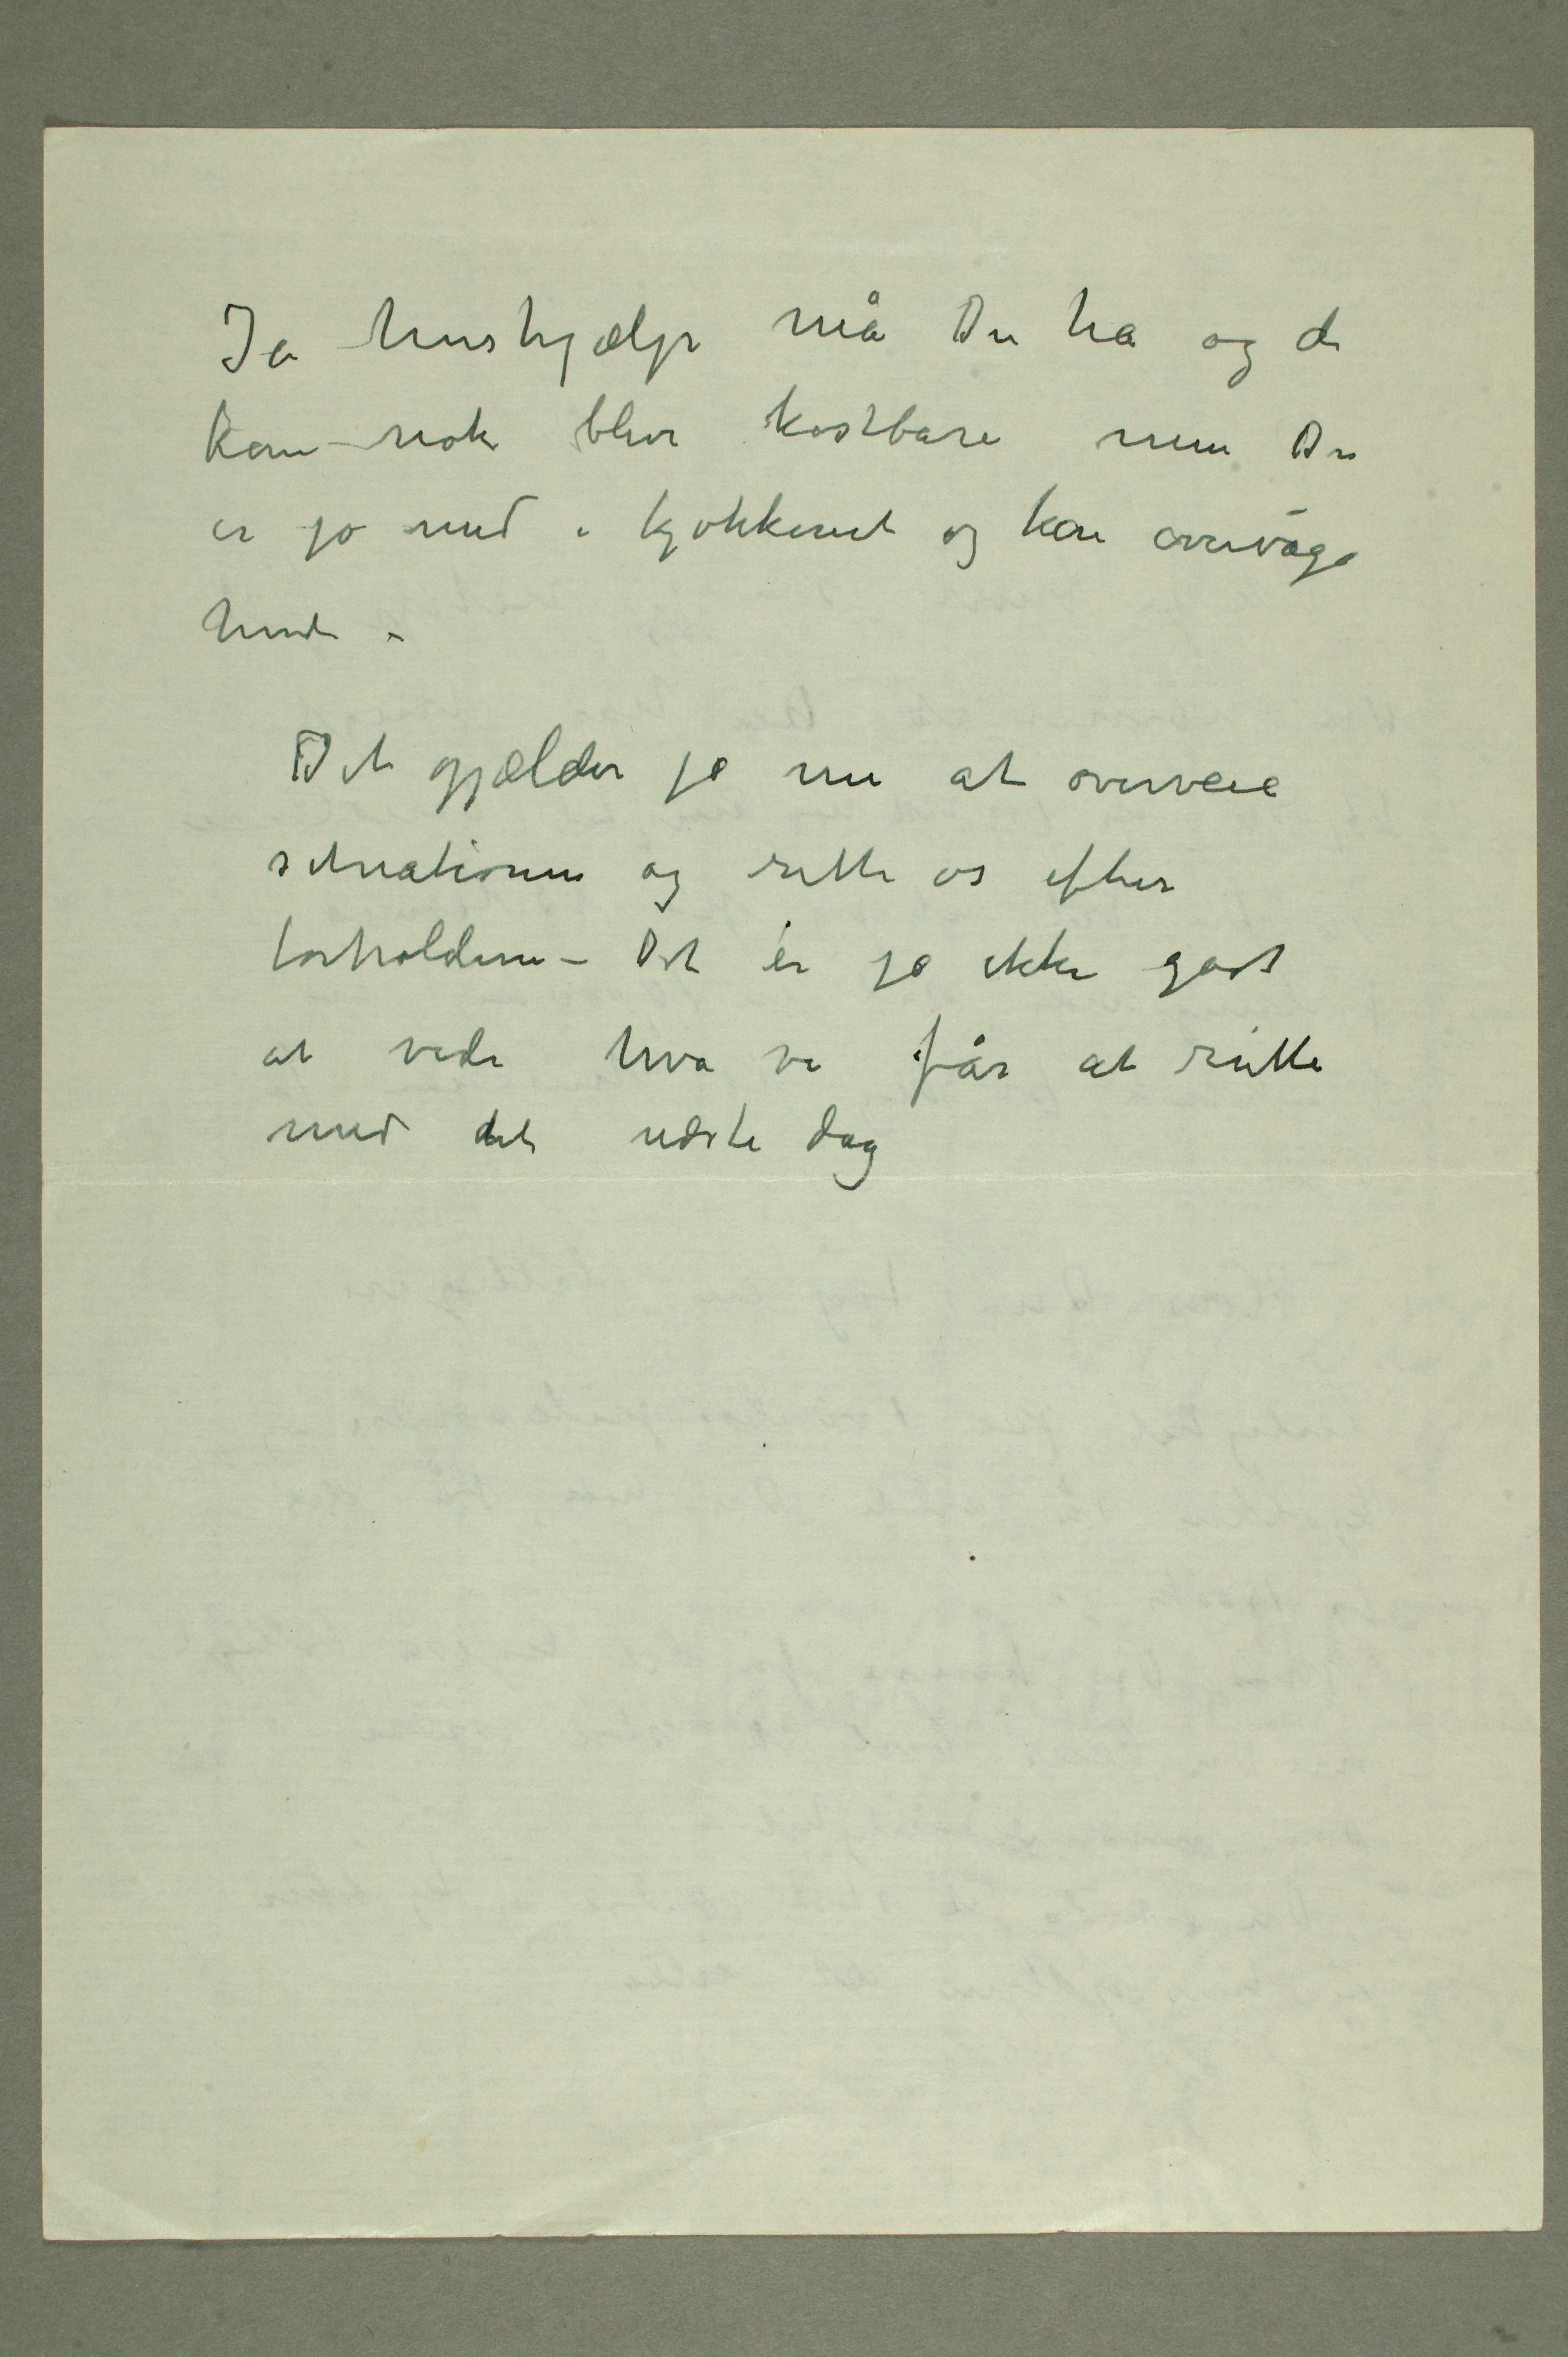 Ja hushjælp må Du ha og de
kan nok blive kostbare men Du
er jo med i kjøkkenet og kan overvåge
hende –
Det gjælder jo nu at overveie
situationen og rette os efter
forholdene – Det er jo ikke godt
at vide hva vi får at rutte
med det næste dag